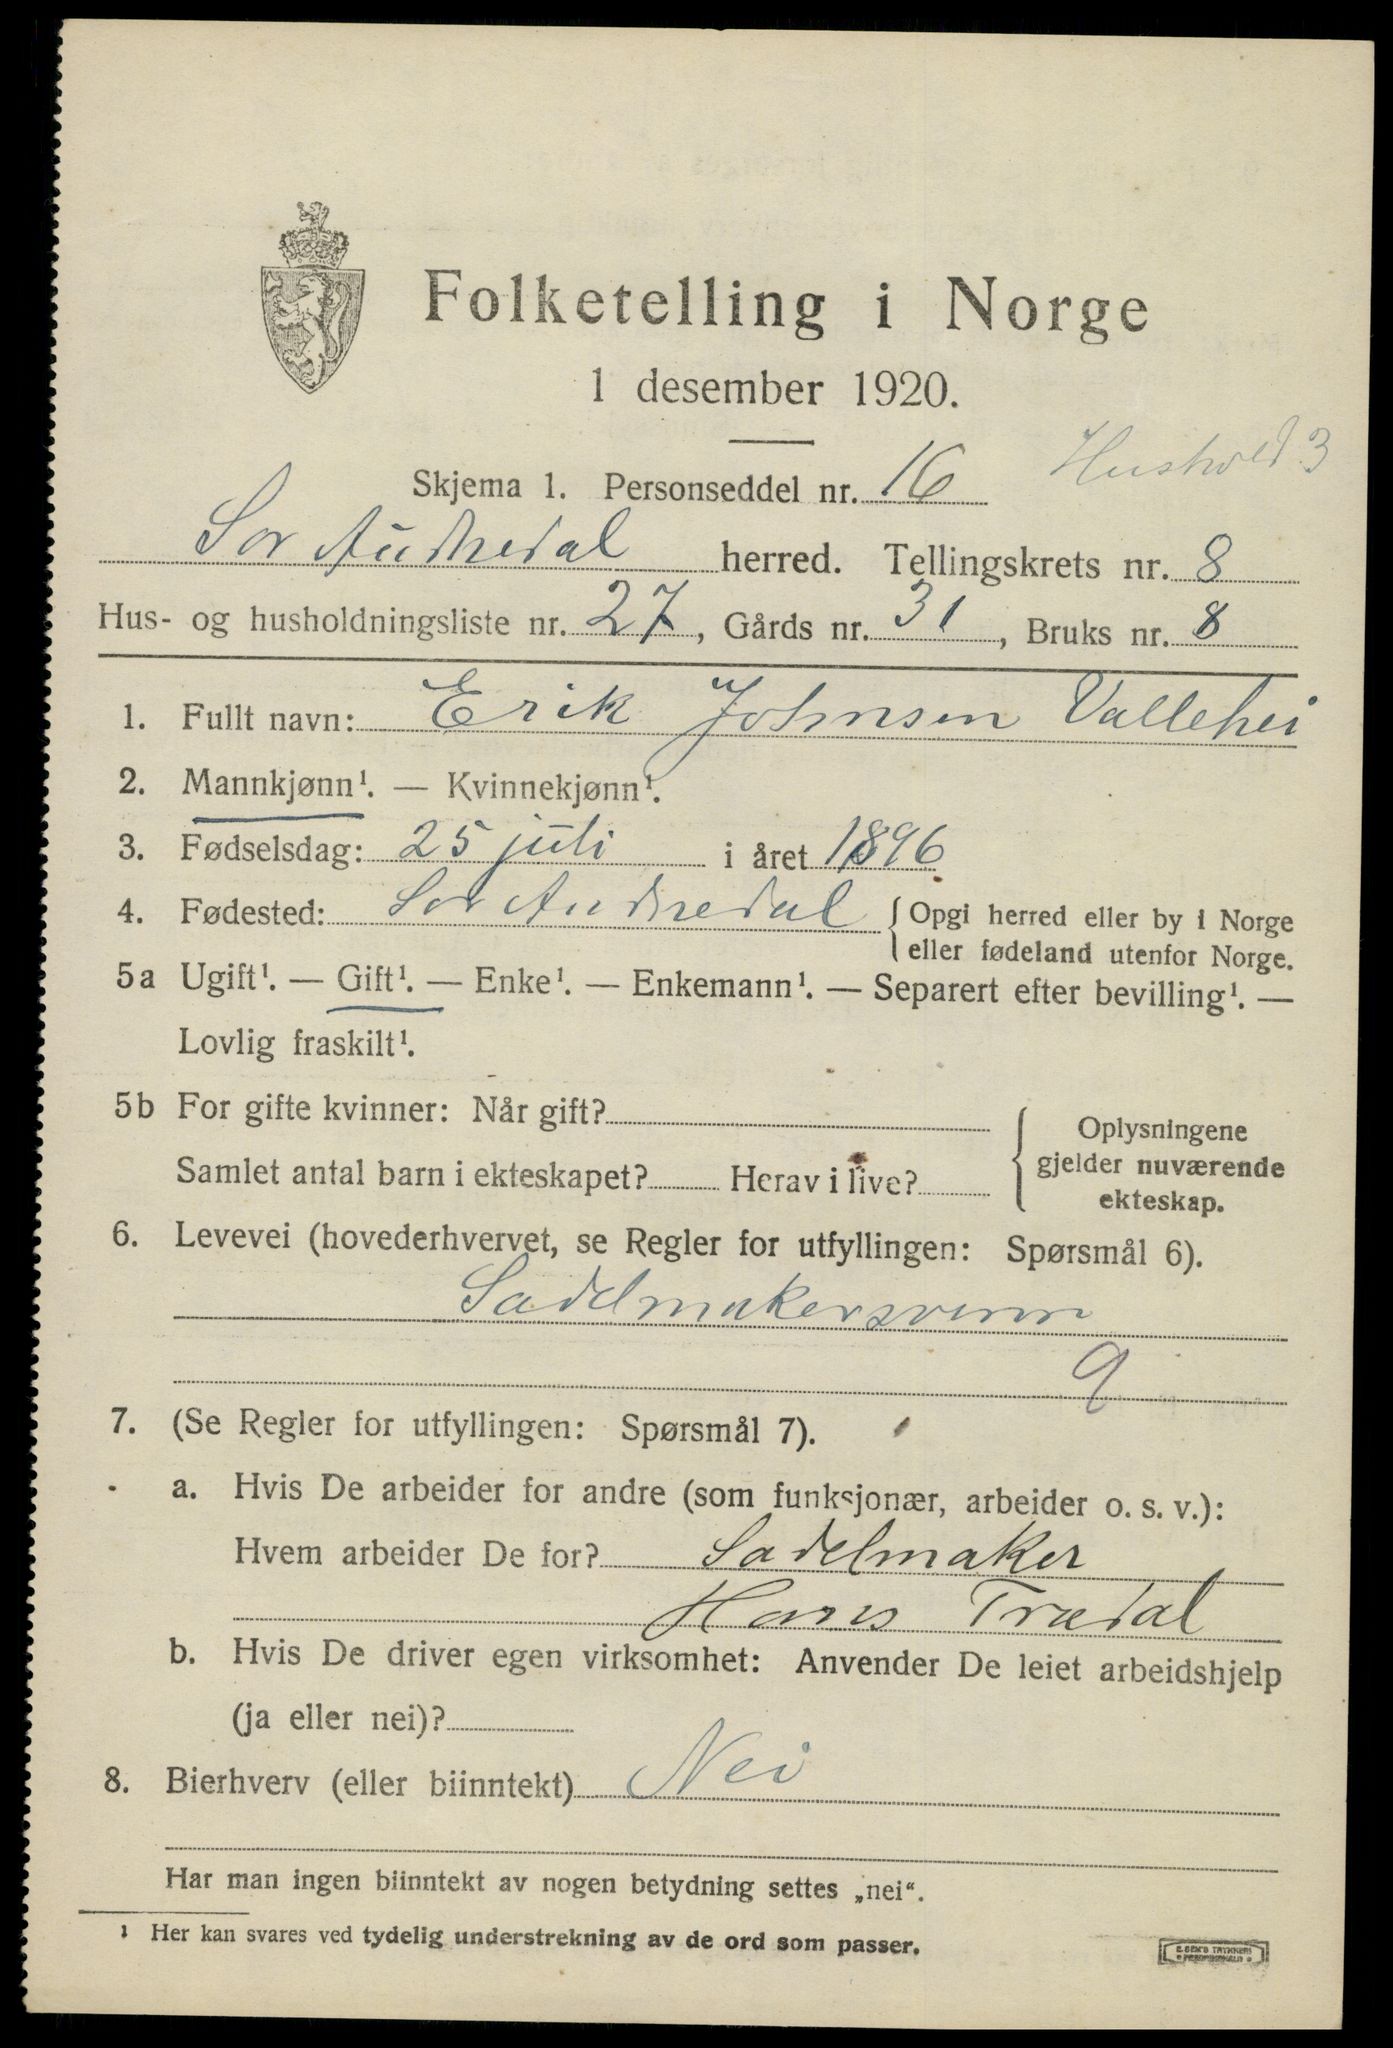 Folketelling i Norge
1 desember 1920.
Skjema 1. Personseddel nr. 16 Hushold 3
Sør Audnedal herred. Tellingskrets nr. 8
Hus- og husholdningsliste nr. 27, Gårds nr. 31, Bruks nr. 8
1. Fullt navn: Erik Johnsen Vallehei
2. Mannkjønn¹. — Kvinnekjønn¹.
3. Fødselsdag: 25 juli i året 1896
4. Fødested: Sør Audnedal {Opgi herred eller by i Norge
eller fødeland utenfor Norge.
5a Ugift¹. — Gift¹. — Enke¹. — Enkemann¹. — Separert efter bevilling¹. —
Lovlig fraskilt¹.
5b For gifte kvinner: Når gift?
Samlet antal barn i ekteskapet? Herav i live?
Oplysningene
gjelder nuværende
ekteskap.
6. Levevei (hovederhvervet, se Regler for utfyllingen: Spørsmål 6).
Sadelmakersvenn
9
7. (Se Regler for utfyllingen: Spørsmål 7).
a. Hvis De arbeider for andre (som funksjonær, arbeider o. s. v.):
Hvem arbeider De for? Sadelmaker
Hans Trædal
b. Hvis De driver egen virksomhet: Anvender De leiet arbeidshjelp
(ja eller nei)?
8. Bierhverv (eller biinntekt) Nei
Har man ingen biinntekt av nogen betydning settes „nei“.
¹ Her kan svares ved tydelig understrekning av de ord som passer.